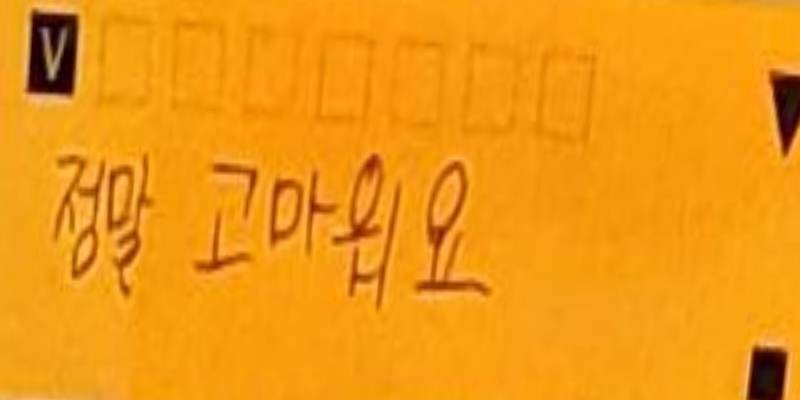 V
정말 고마워요